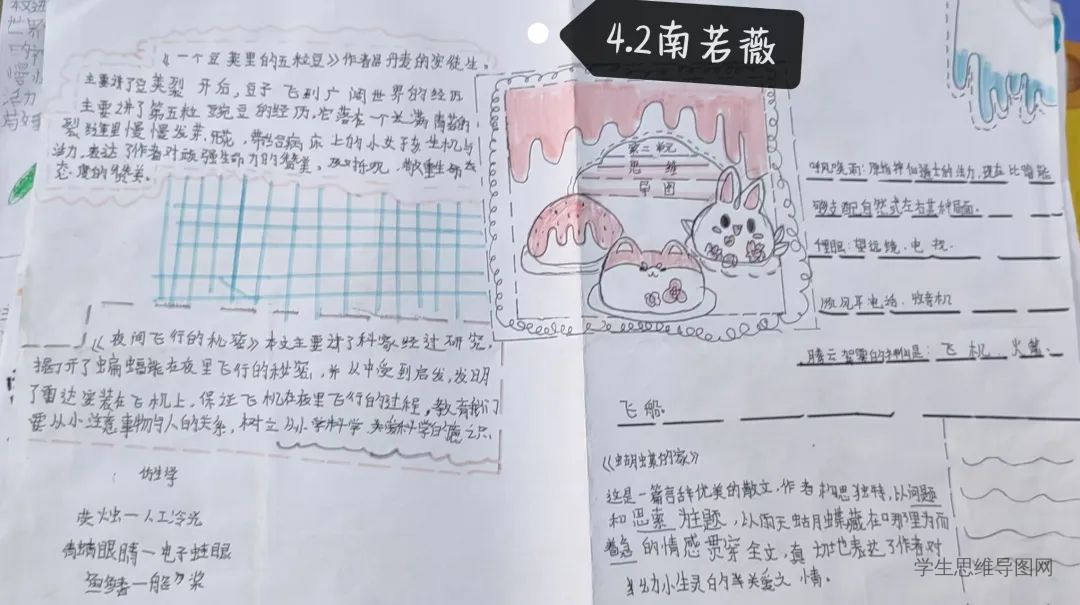 4.2南若薇
《一个豆荚里的五粒豆》作者是丹麦的安徒生。
主要讲了豆荚裂 开后,豆子 飞到广阔世界的经历
主要讲了第五粒 豌豆的经历,它落在一个长满青苔的
裂缝里慢慢发芽、开花,带给病床上的小女孩生机与
活力,表达了作者对顽强生命力的赞美,及 乐观、敬重生命态
态度的赞美。
第二单元
思维
导图
呼风唤雨:原指神仙道士的法力,现在比喻能
够支配自然或左右某种局面。
千里眼:望远镜、电视。
顺风耳电话、收音机
腾云驾雾的 是:飞机 火箭、
飞船。
《夜间飞行的秘密》本文主要讲了科学家经过研究,
揭开了蝙蝠能在夜里飞行的秘密,并从中受到启发,发明
了雷达安装在飞机上,保证飞机在夜里飞行的过程,教育我们
要从小注意事物与人的关系,树立从小学科学 爱科学的意识
仿生学
萤火虫一人工冷光
蜻蜓眼睛一电子蛙眼
鱼鳍一船 桨
《蝴蝶的家》
这是一篇言辞优美的散文,作者构思独特,以问题
和思索为主题,以雨天蝴蝶藏在哪里为而
着急 的情感贯穿全文,真切地表达了作者对
弱小生灵的关爱之情。
学生思维导图网